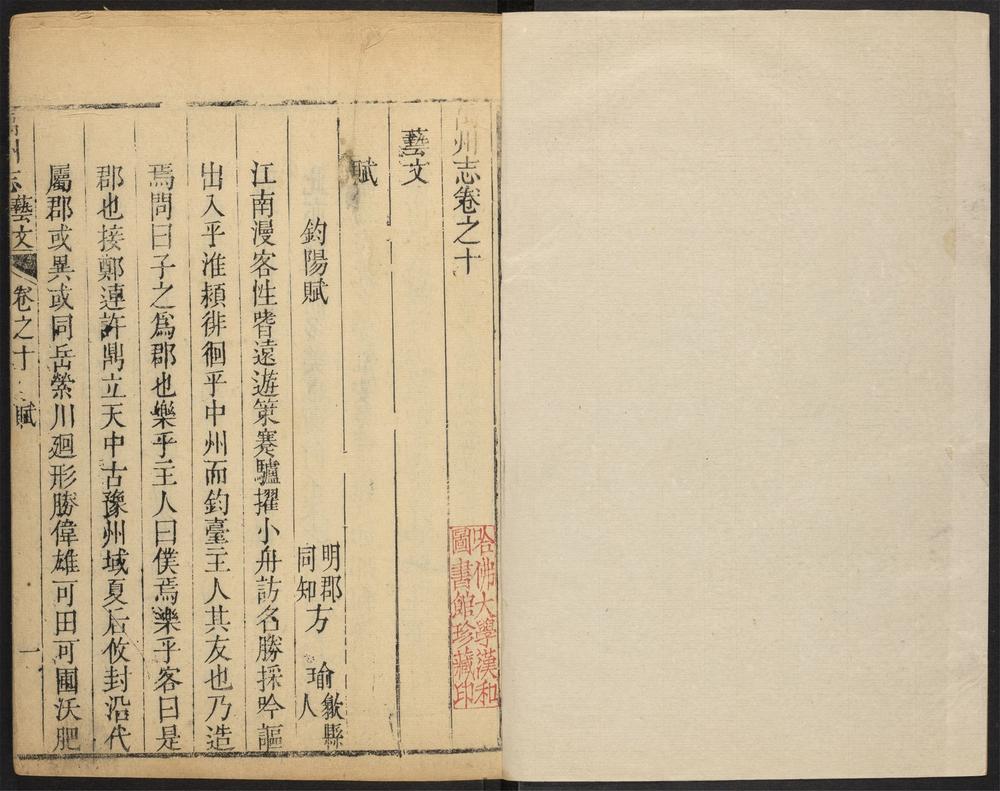 州志卷之十
哈佛大學漢和
圖書館珍藏印
藝文
賦
鈞陽賦 明郡同知 方瑜 歙縣人
江南漫客性嗜遠遊策蹇驢擢小舟訪名勝採吟謳
出入乎淮潁徘徊乎中州而鈞臺主人其友也乃造
焉問曰子之為郡也樂乎主人曰僕焉樂乎客曰是
郡也接鄭連許鼎立天中古豫州域夏后攸封沿代
屬郡或異或同岳縈川廻形勝偉雄可田可圃沃肥
州志 藝文 卷之十 賦 一